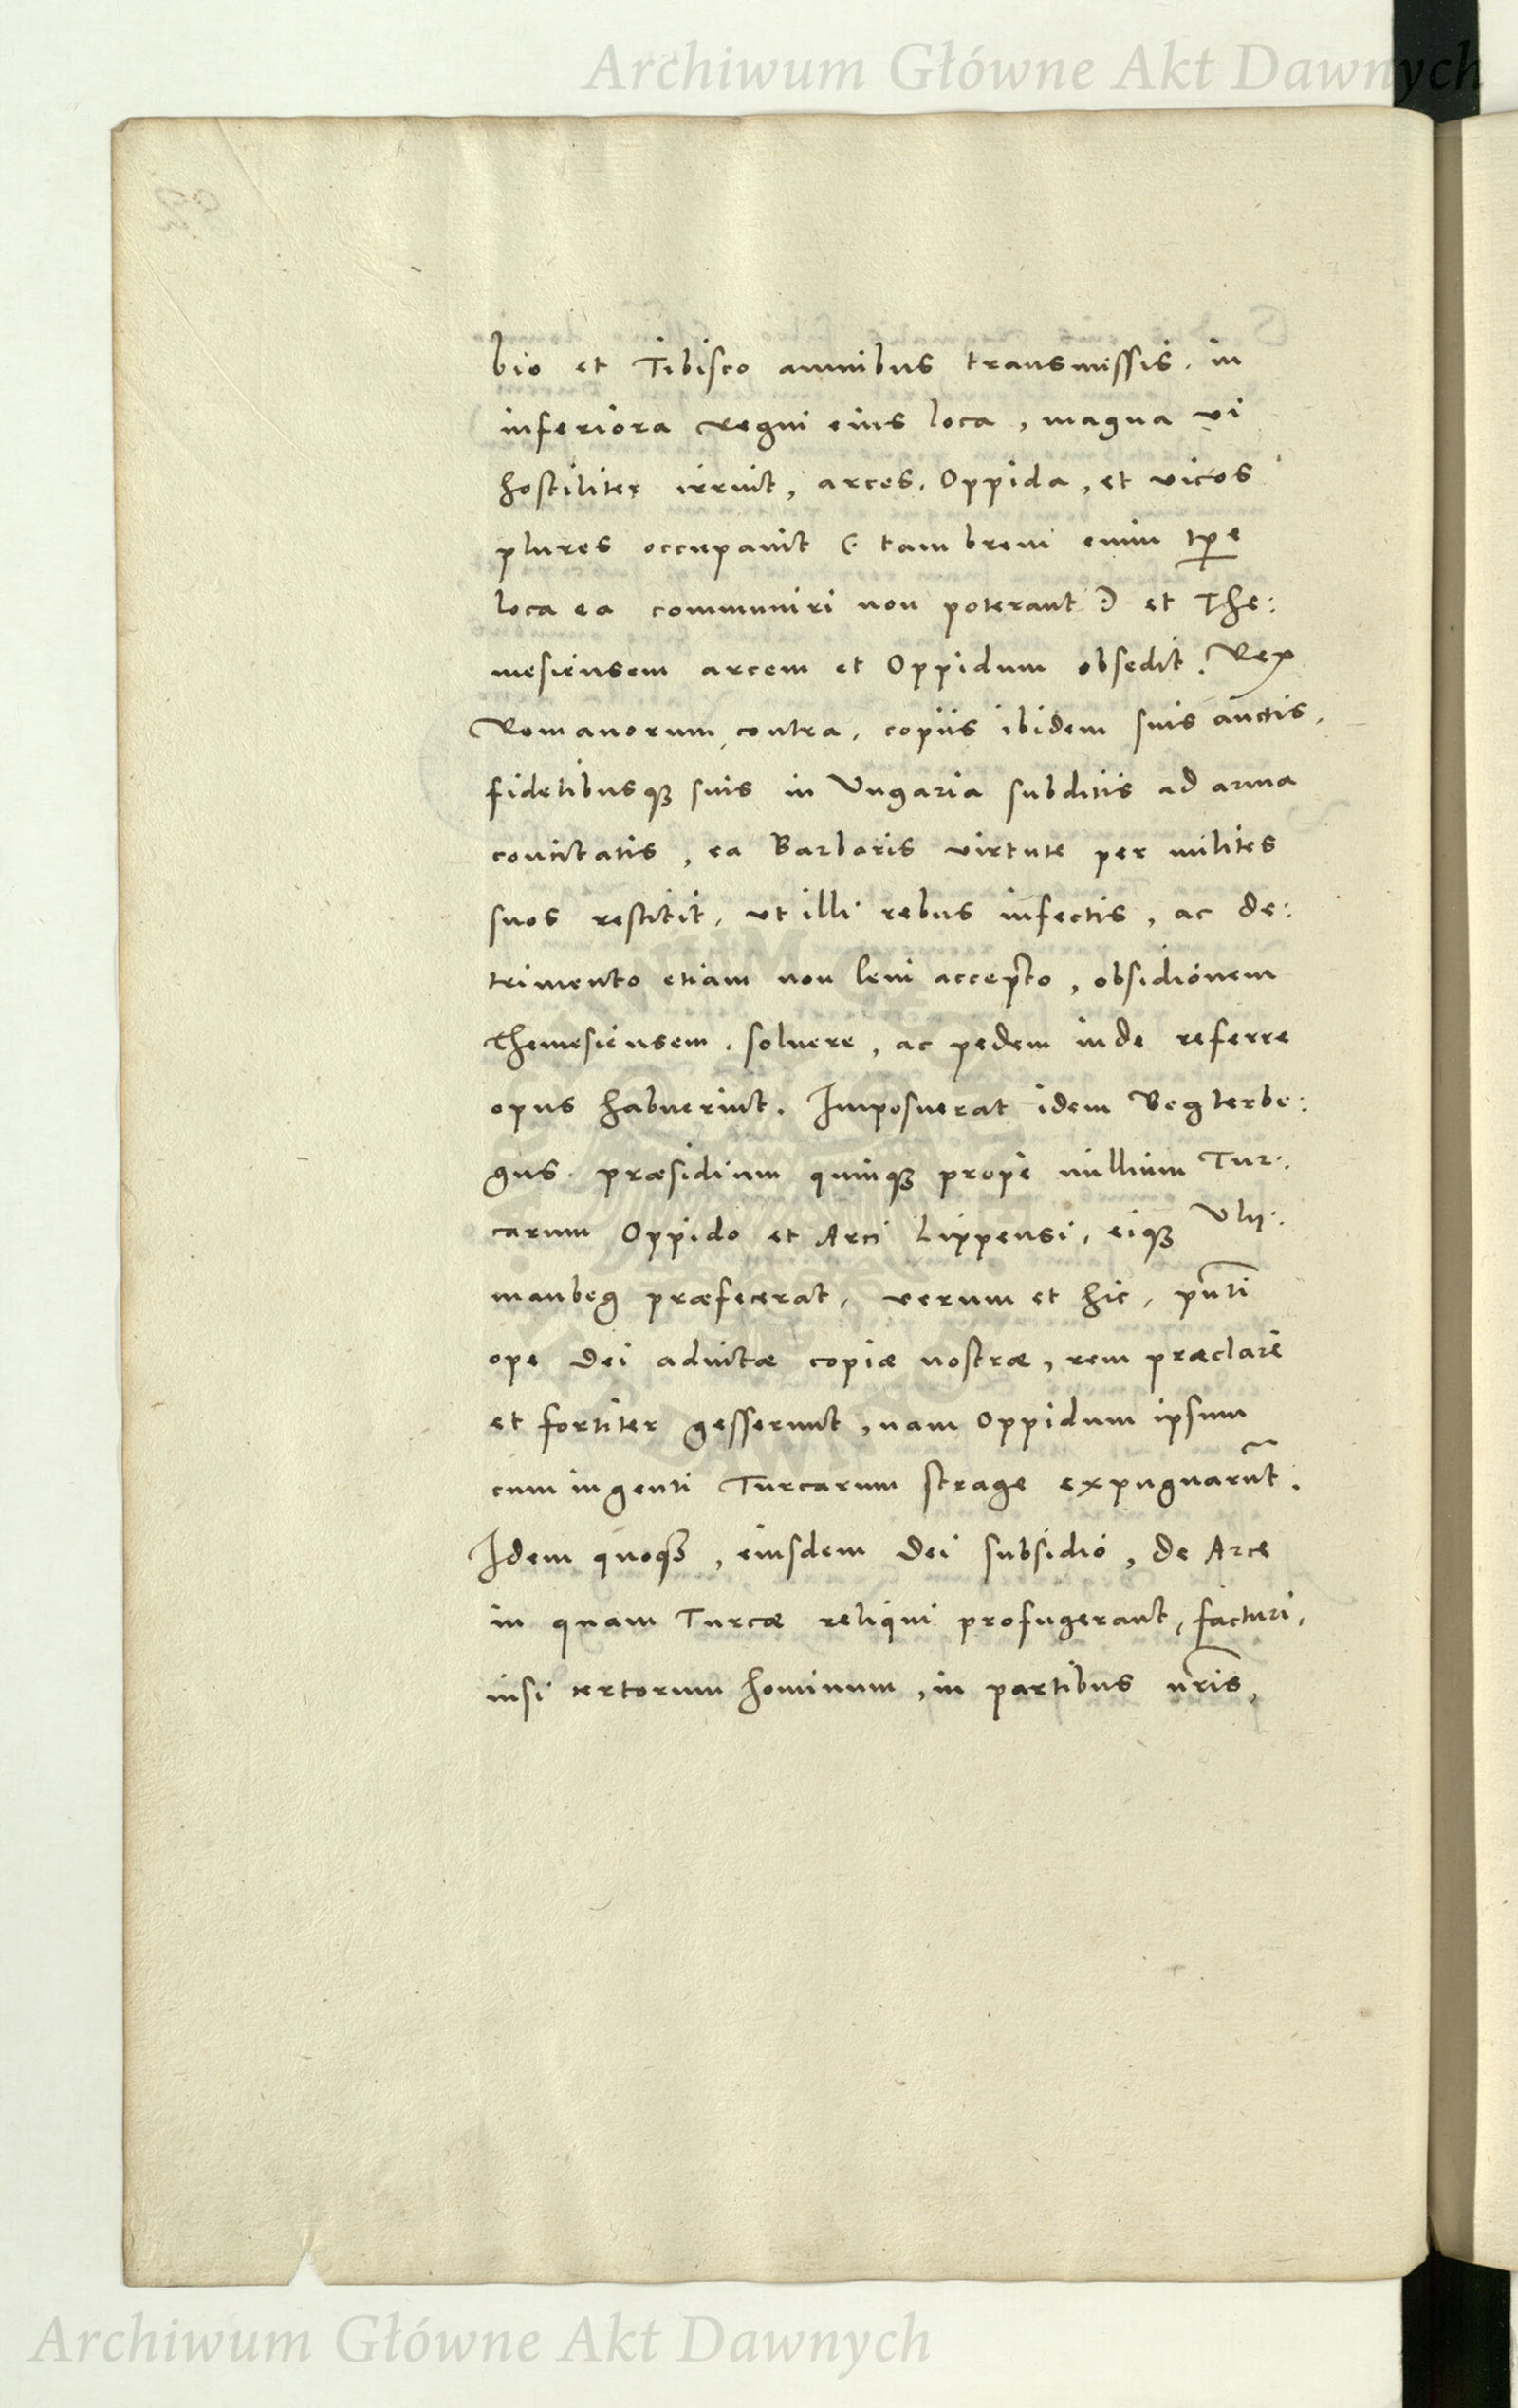 Archiwum Główne Akt Dawnych
bio et Tibisco amnibus transmissis. in
inferiora Regni eius loca, magna vi
hostiliter irruit, arces. Oppida, et vicos
plures occupavit (: tam brevi enim tp̄e
loca ea communiri non poterant :) et The:
mesiensem arcem et Oppidum obsedit. Rex
Romanorum contra, copiis ibidem suis auctis,
fidelibusq₃ suis in Vngaria subditis ad arma
concitatis, ea Barbaris virtute per milites
suos restitit, vt illi rebus infectis, ac de:
trimento etiam non levi accepto, obsidionem
Themesiensem. solvere, ac pedem inde referre
opus habuerint. Imposuerat idem Begterbe:
gus. præsidium quinq₃ propè millium Tur:
carum Oppido et Arci Lippensi, eiq₃ Vlÿ:
manbeg præfecerat, verum et hic, pn̄ti
ope Dei adiutæ copiæ nostræ, rem præclarè
et fortiter gesserunt, nam Oppidum ipsum
cum ingenti Turcarum strage expugnarūt.
Idem quoq₃, eiusdem Dei subsidio, de Arce
in quam Turcæ reliqui profugerant, facturi,
nisi certorum hominum, in partibus nr̄is,
Archiwum Główne Akt Dawnych